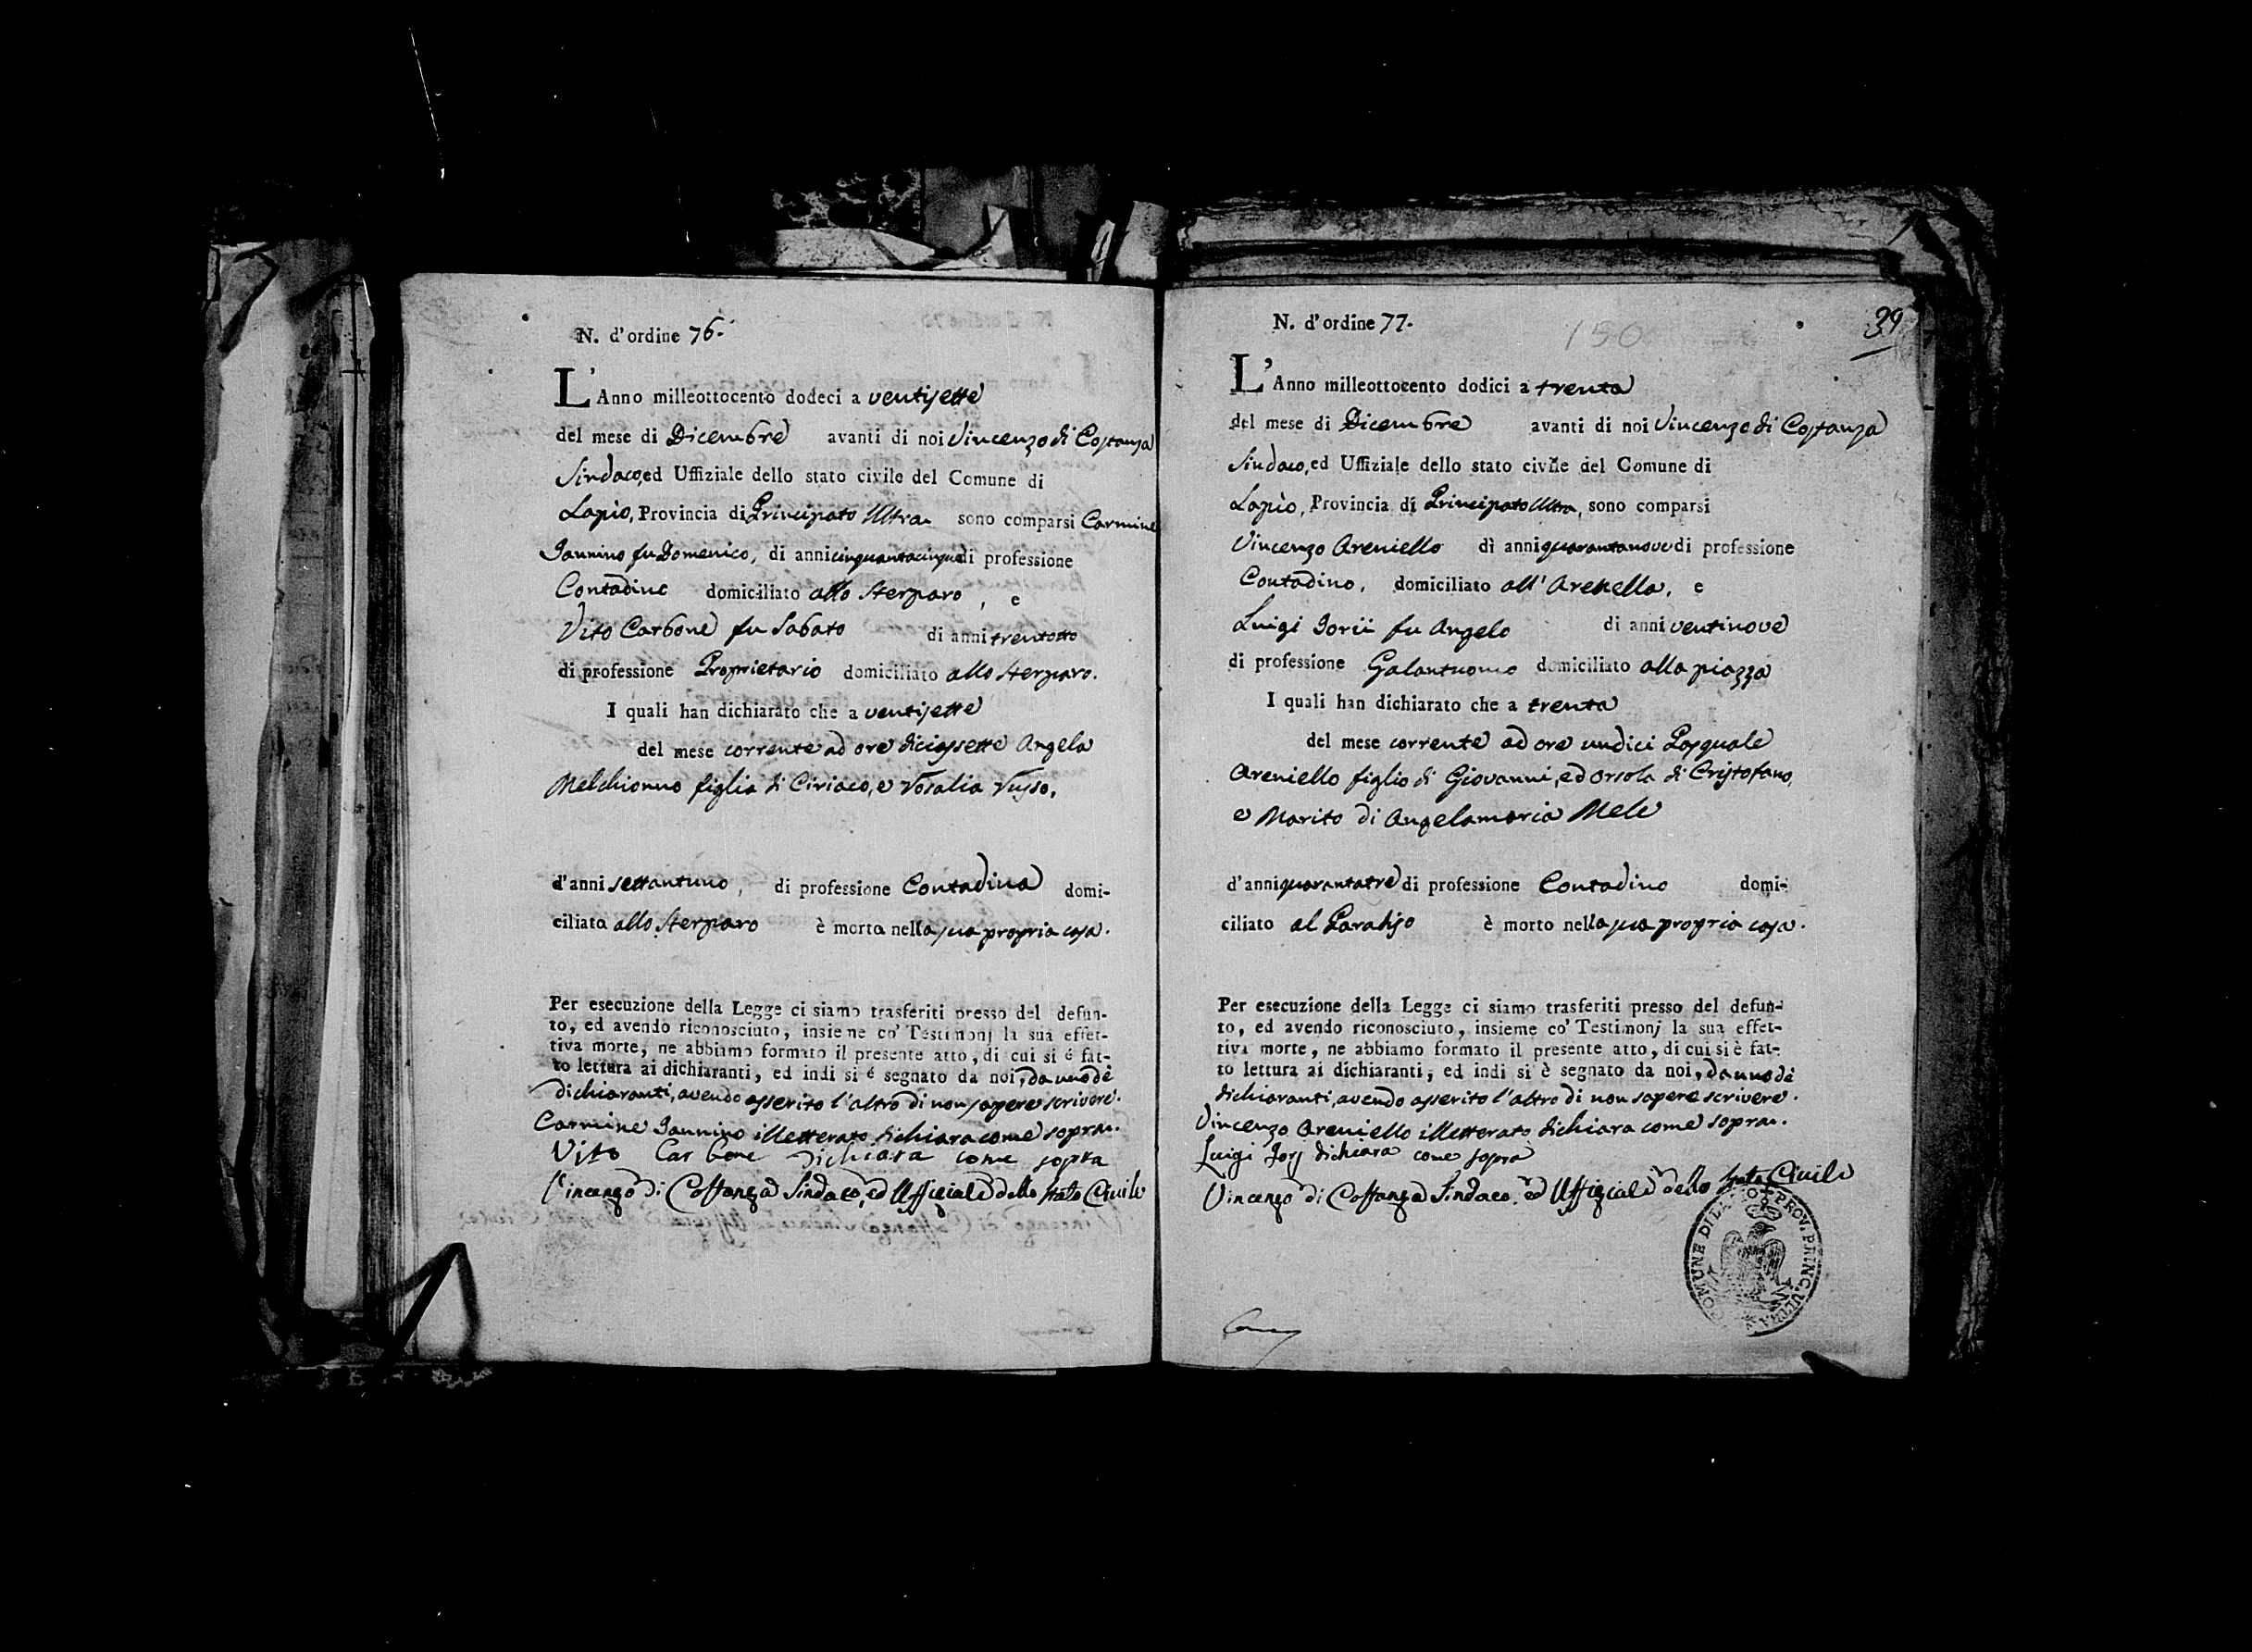 N. d'ordine 76.
L'Anno milleottocento dodeci a ventisette
del mese di Dicembre avanti di noi Vincenzo di Costanza
Sindaco, ed Uffiziale dello stato civile del Comune di
Lapio, Provincia di Principato Ultra sono comparsi Carmine
Iannino fu Domenico, di anni cinquantacinque di professione
Contadino domiciliato allo Sterparo, e
Vito Carbone fu Sabato di anni trentotto
di professione Proprietario domiciliato allo Sterparo.
I quali han dichiarato che a ventisette
del mese corrente ad ore diciassette Angela
Melchionno figlia di Ciriaco, e Rosalia Russo,
d'anni settantuno, di professione Contadina domi-
ciliata allo Sterparo è morta nella sua propria casa.
Per esecuzione della Legge ci siamo trasferiti presso del defun-
to, ed avendo riconosciuto, insieme co' Testimonj la sua effet-
tiva morte, ne abbiamo formato il presente atto, di cui si é fat-
to lettura ai dichiaranti, ed indi si é segnato da noi, da uno de
dichiaranti, avendo asserito l'altro di non sapere scrivere.
Carmine Iannino illetterato dichiara come sopra.
Vito Carbone dichiara come sopra
Vincenzo di Costanza Sindaco, ed Ufficiale dello stato Civile
39
150
N. d'ordine 77.
L'Anno milleottocento dodici a trenta
del mese di Dicembre avanti di noi Vincenzo di Costanza
Sindaco, ed Uffiziale dello stato civile del Comune di
Lapio, Provincia di Principato Ultra, sono comparsi
Vincenzo Areniello di anni quarantanove di professione
Contadino, domiciliato all'Arenella, e
Luigi Iorii fu Angelo di anni ventinove
di professione Galantuomo domiciliato alla piazza
I quali han dichiarato che a trenta
del mese corrente ad ore undici Pasquale
Areniello figlio di Giovanni, ed Orsola di Cristofano,
e Marito di Angelamaria Mele
d'anni quarantatre di professione Contadino domi-
ciliato al Paradiso è morto nella sua propria casa.
Per esecuzione della Legge ci siamo trasferiti presso del defun-
to, ed avendo riconosciuto, insieme co' Testimonj la sua effet-
tiva morte, ne abbiamo formato il presente atto, di cui si è fat-
to lettura ai dichiaranti, ed indi si è segnato da noi, da uno de
dichiaranti, avendo asserito l'altro di non sapere scrivere.
Vincenzo Areniello illetterato dichiara come sopra.
Luigi Iorj dichiara come sopra
Vincenzo di Costanza Sindaco, ed Uffiziale dello stato Civile
COMUNE DI LAPIO PROV. PRINC. ULTRA